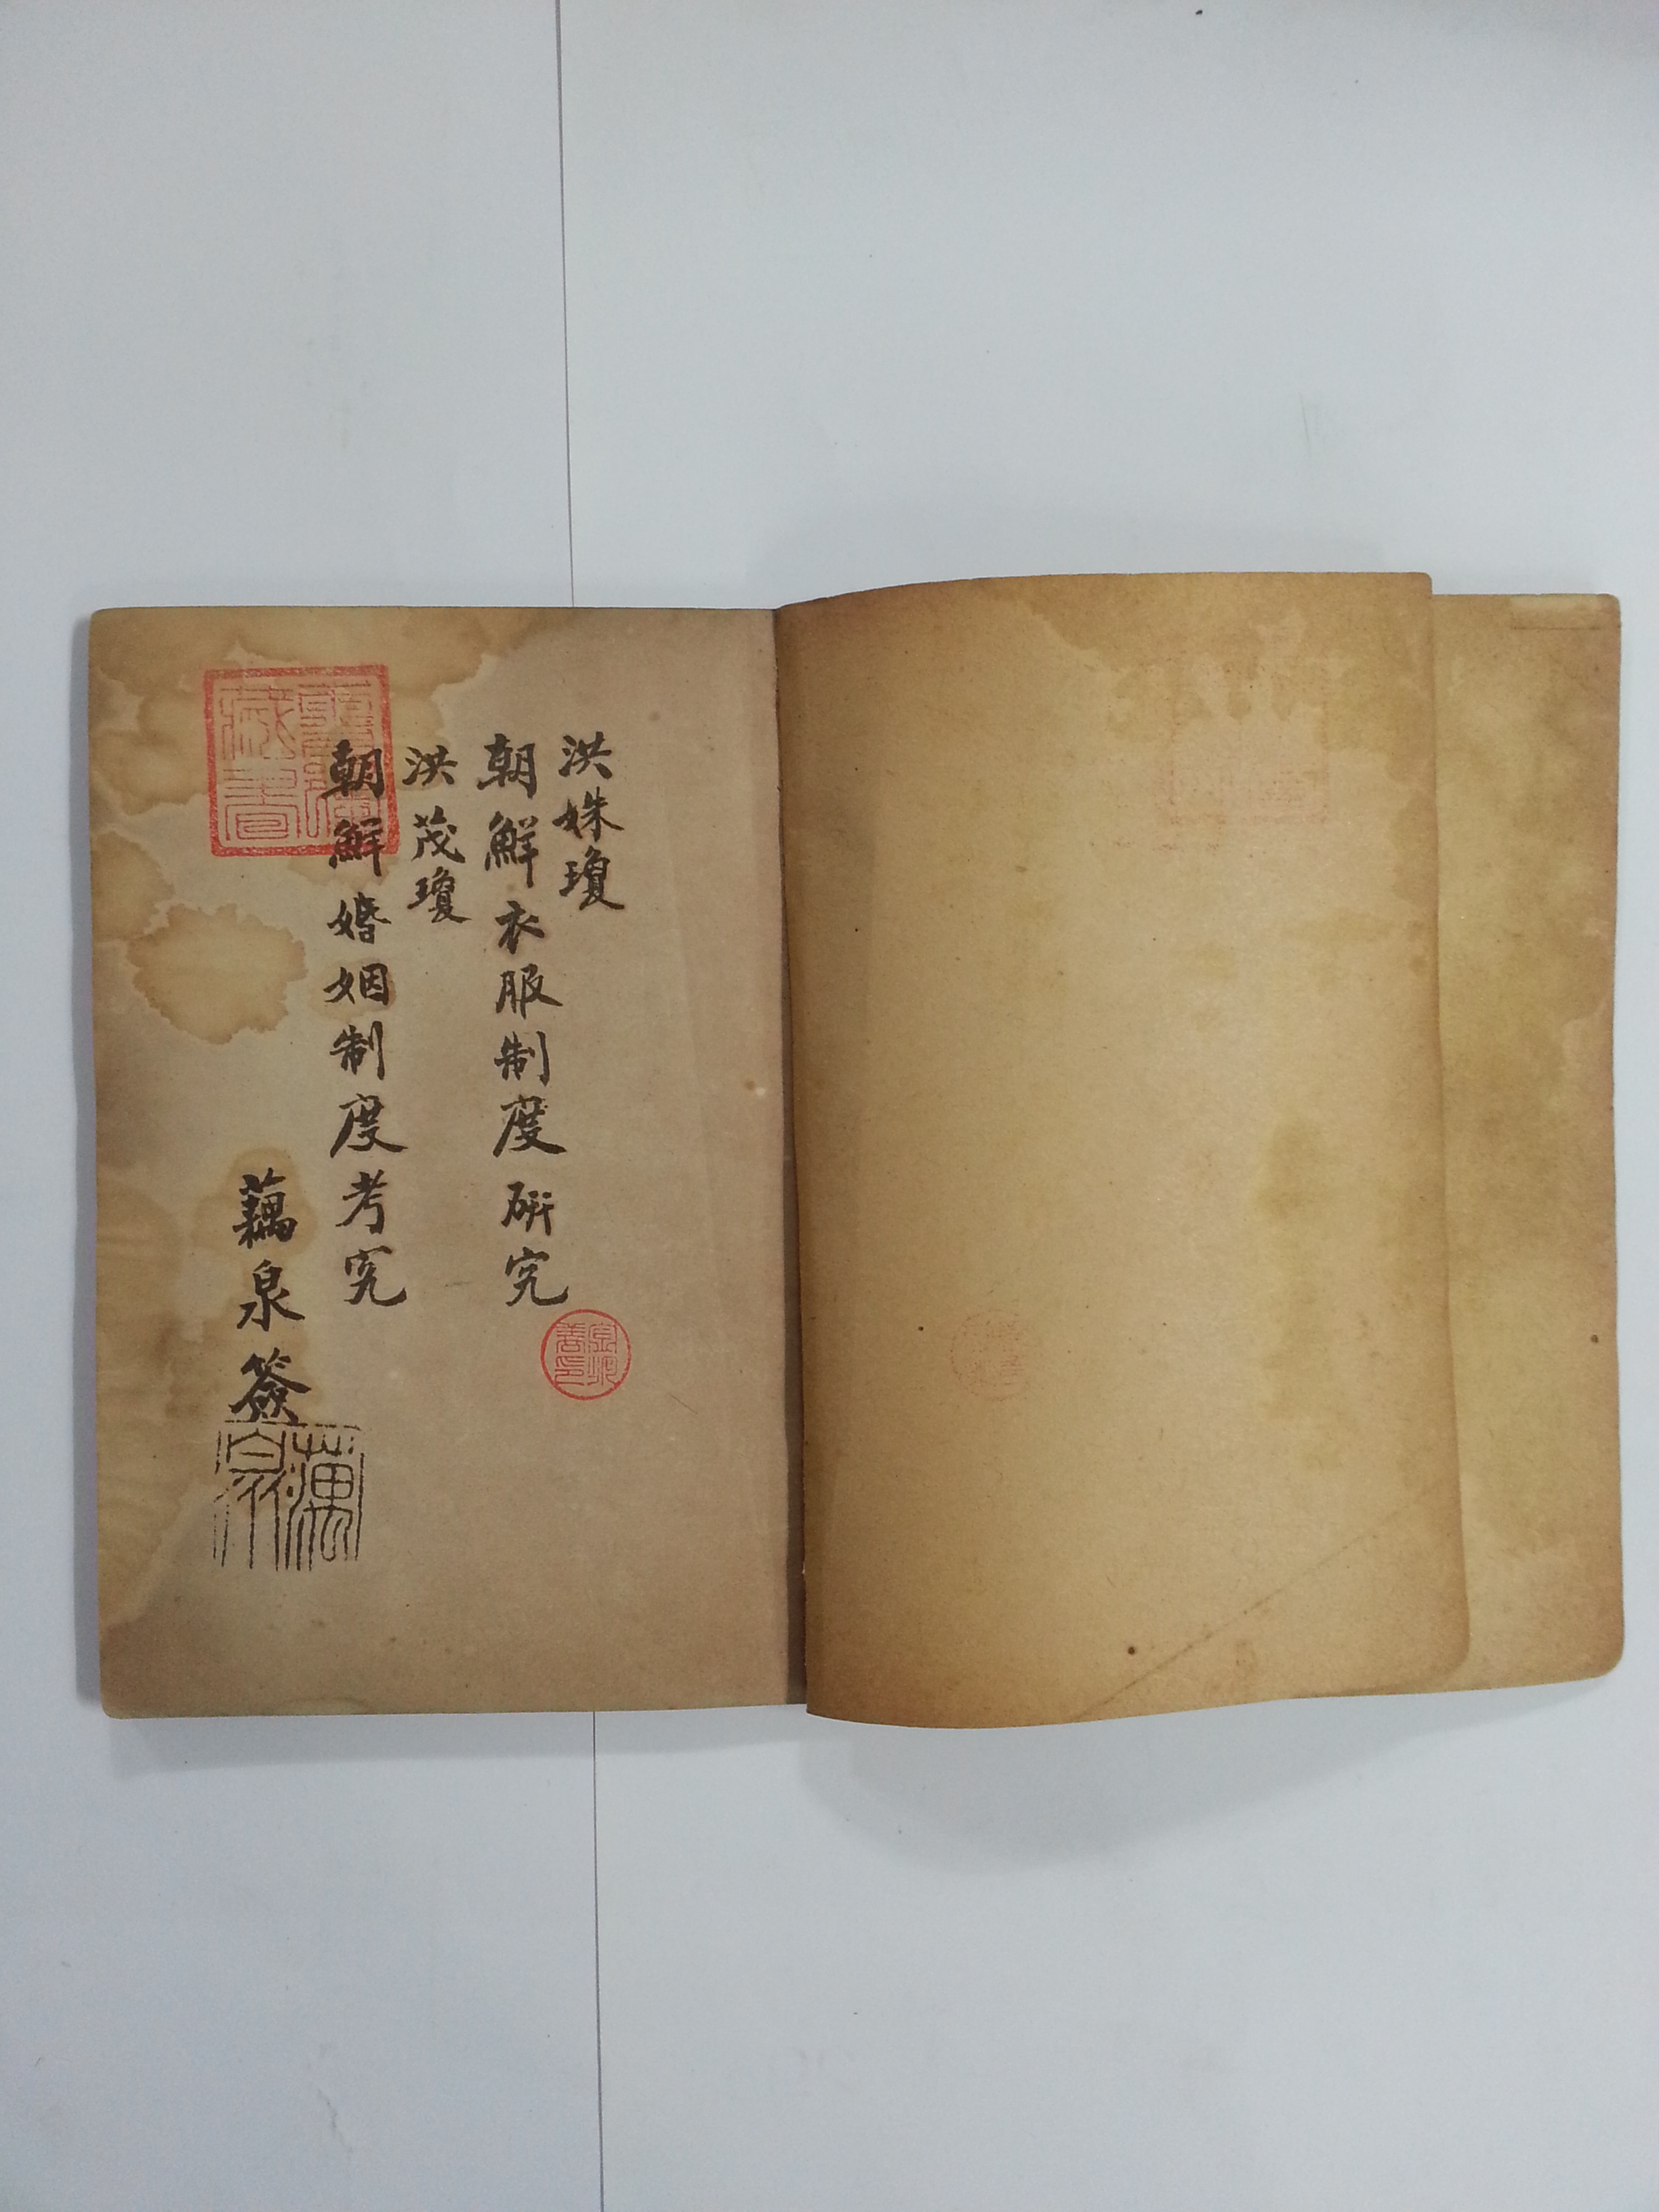 洪姝瓊
朝鮮衣服制度研究
洪茂瓊
朝鮮婚姻制度考究
藕泉簽
藏書